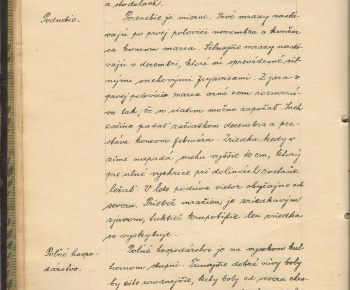 a stodolách.
Podnebie. Podnebie je mierne. Prvé mrazy nastá-
vajú po prvej polovici novembra a končia
sa koncom marca. Silnejšie mrazy nastá-
vajú v decembri, ktoré sú sprevádzané sil-
nými snehovými fujavicami. Z jara v
prvej polovici marca orná zem rozmrzá-
va tak, že s siatím možno započať. Sneh
začína padať začiatkom decembra a pre-
stáva koncom februára. Zriedka, kedy v
zime napadá snehu vyššie 10 cm, ktorý
pre silné výchrice pri dolinách zostane
ležať. V lete podúva vietor obyčajne od
severu. Priebeh mračien je zriedkavým
zjavom, taktiež krupobitie len zriedka
sa vyskytuje.
Poľné hospo- Poľné hospodárstvo je na vysokom kul-
dárstvo. túrnom stupni. Tunajšie dobré nivy boly
by ešte úrodnejšie, keby boly od severu chrá-